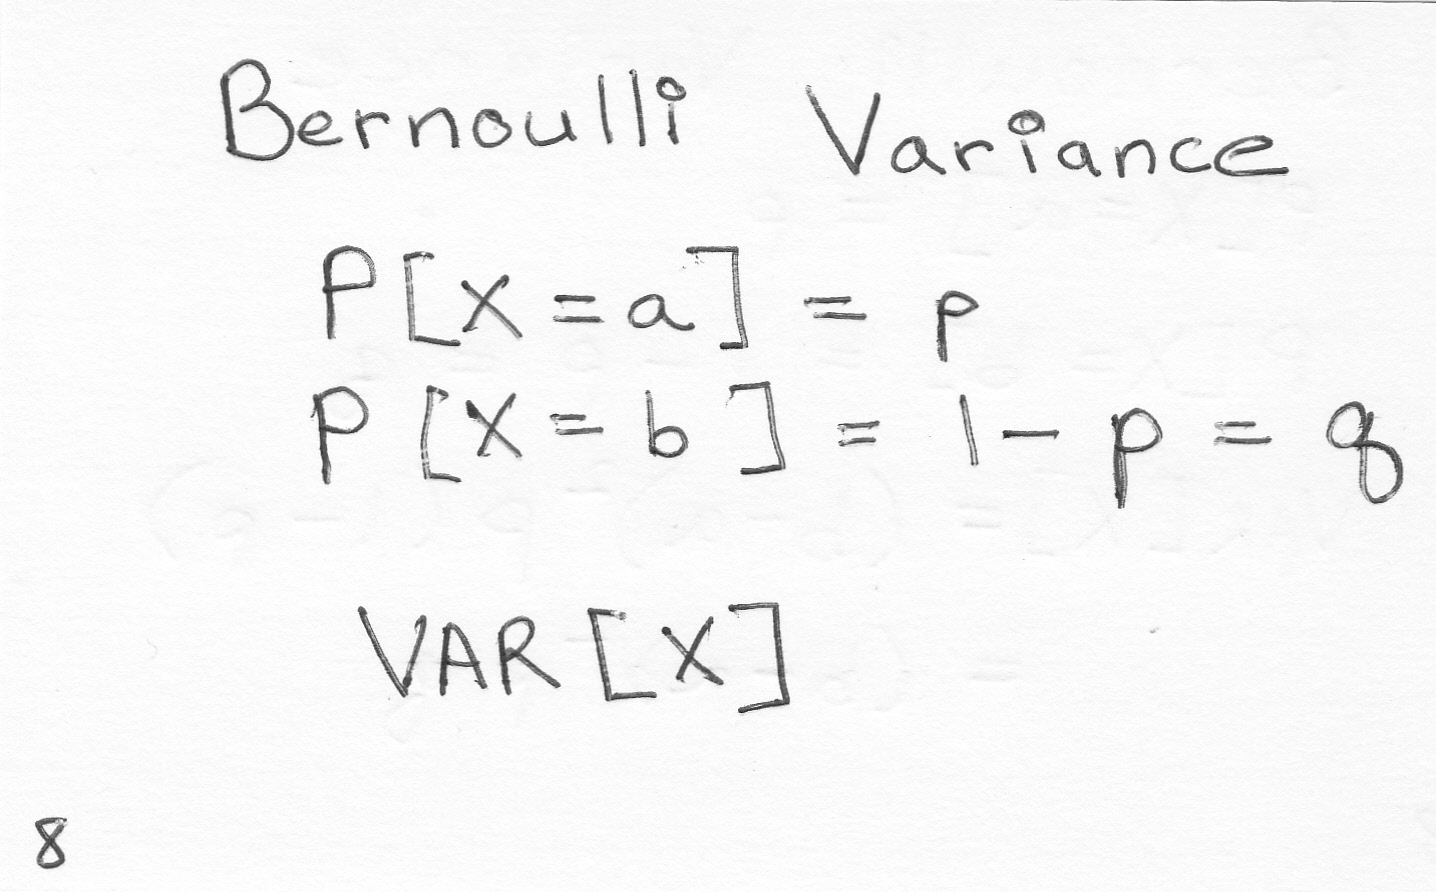 Bernoulli Variance
P[X=a] = p
P[X=b] = 1-p = q
VAR[X]
8